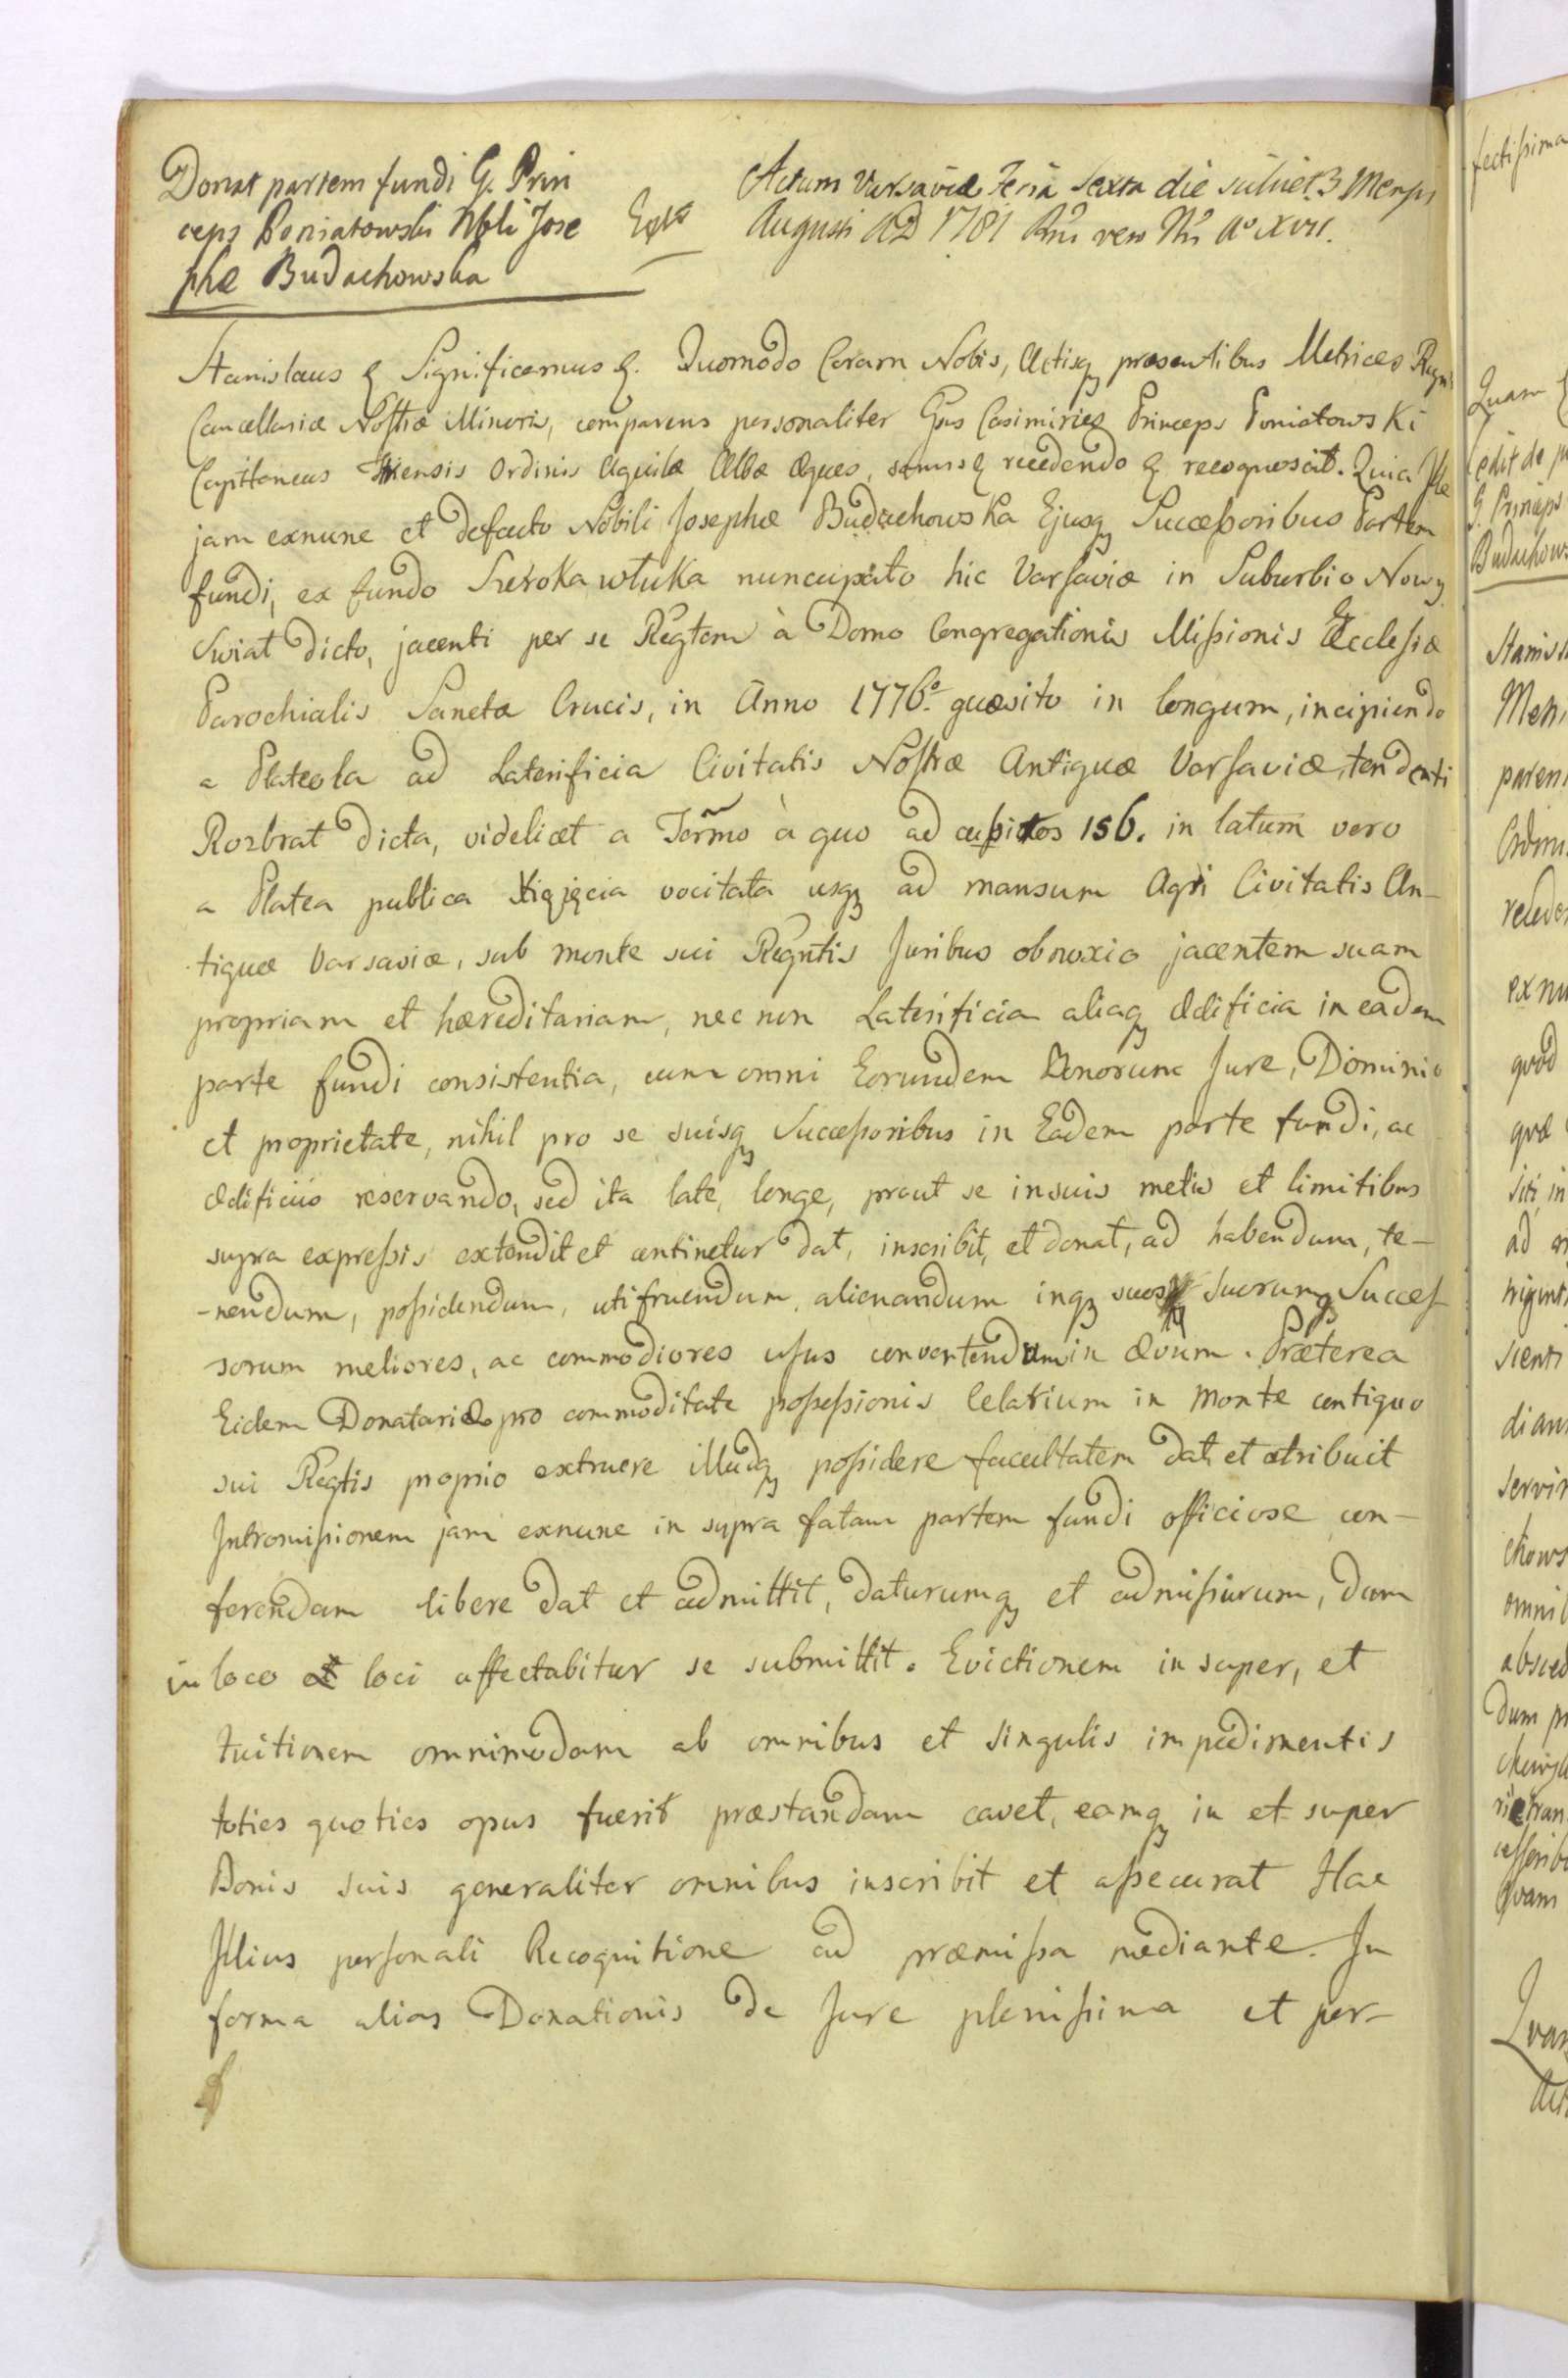 Donat partem fundi G. Prin
ceps Poniatowski Nbli Jose
phæ Budachowska
Extt
Actum Varsaviæ Feria Sexta die scilicet 3 Mensis
Augusti AD 1781 Rni vero Nri Aº XVII.
Stanislaus & Significamus &. Quomodo Coram Nobis, Actisq; præsentibus Metrices Regni
Cancellariæ Nostræ Minoris, comparens personaliter Gsus Casimirius Princeps Poniatowski
Capittaneus Ordinis Aquilæ Albæ Eques, sanus & recedendo & recognoscit. Quia Ille
jam exnunc et defacto Nobili Josephæ Budachowska Ejusq; Successoribus Partem
fundi, ex fundo Szeroka włuka nuncupato hic Varsaviæ in Suburbio Nowy
Swiat dicto, jacenti per se Regtem à Domo Congregationis Missionis Ecclesiæ
Parochialis Sanctæ Crucis, in Anno 1776º quæsito in longum, incipiendo
a Plateola ad Laterificia Civitatis Nostræ Antiquæ Varsaviæ, tendenti
Rozbrat dicta, videlicet a Termo à quo ad cubitos 156. in latum vero
a Platea publica Xiążęcia vocitata usq; ad mansum Agri Civitatis An-
tiquæ Varsaviæ, sub monte sui Regntis Juribus obnoxio jacentem suam
propriam et hæreditariam, nec non Laterificia aliaq; Ædificia in eadem
parte fundi consistentia, cum omni Eorundem Bonorum Jure, Dominio
et proprietate, nihil pro se suisq; Successoribus in Eadem parte fundi, ac
Ædificiis reservando, sed ita late, longe, prout se in suis metis et limitibus
supra expressis extendit et continetur dat, inscribit, et donat, ad habendum, te-
-nendum, possidendum, utifruendum, alienandum inq; suos suorumq; Succes-
sorum meliores, ac commodiores usus convertendum in ævum. Præterea
Eidem Donatariæ pro commoditate possessionis Celarium in Monte contiguo
sui Regtis proprio extruere illudq; possidere facultatem dat et atribuit
Intromissionem jam exnunc in supra fatam partem fundi officiose con-
ferendam libere dat et admittit, daturumq; et admissurum, dum
in loco et loci affectabitur se submittit. Evictionem in super, et
tuitionem omnimodam ab omnibus et singulis impedimentis
toties quoties opus fuerit præstandam cavet, eamq; in et super
Bonis suis generaliter omnibus inscribit et assecurat Hac
Illius personali Recognitione ad præmissa mediante. In
forma alias Donationis de Jure plenissima et per-
fectissima
Quam
cedit de
G. Princeps
Budachows
Stanisl
Metr
paren
Ordin
recedo
exnu
quod
quæ
siti, in
ad
sienti
dian
servir
chows
omnib
absced
dum
Quam